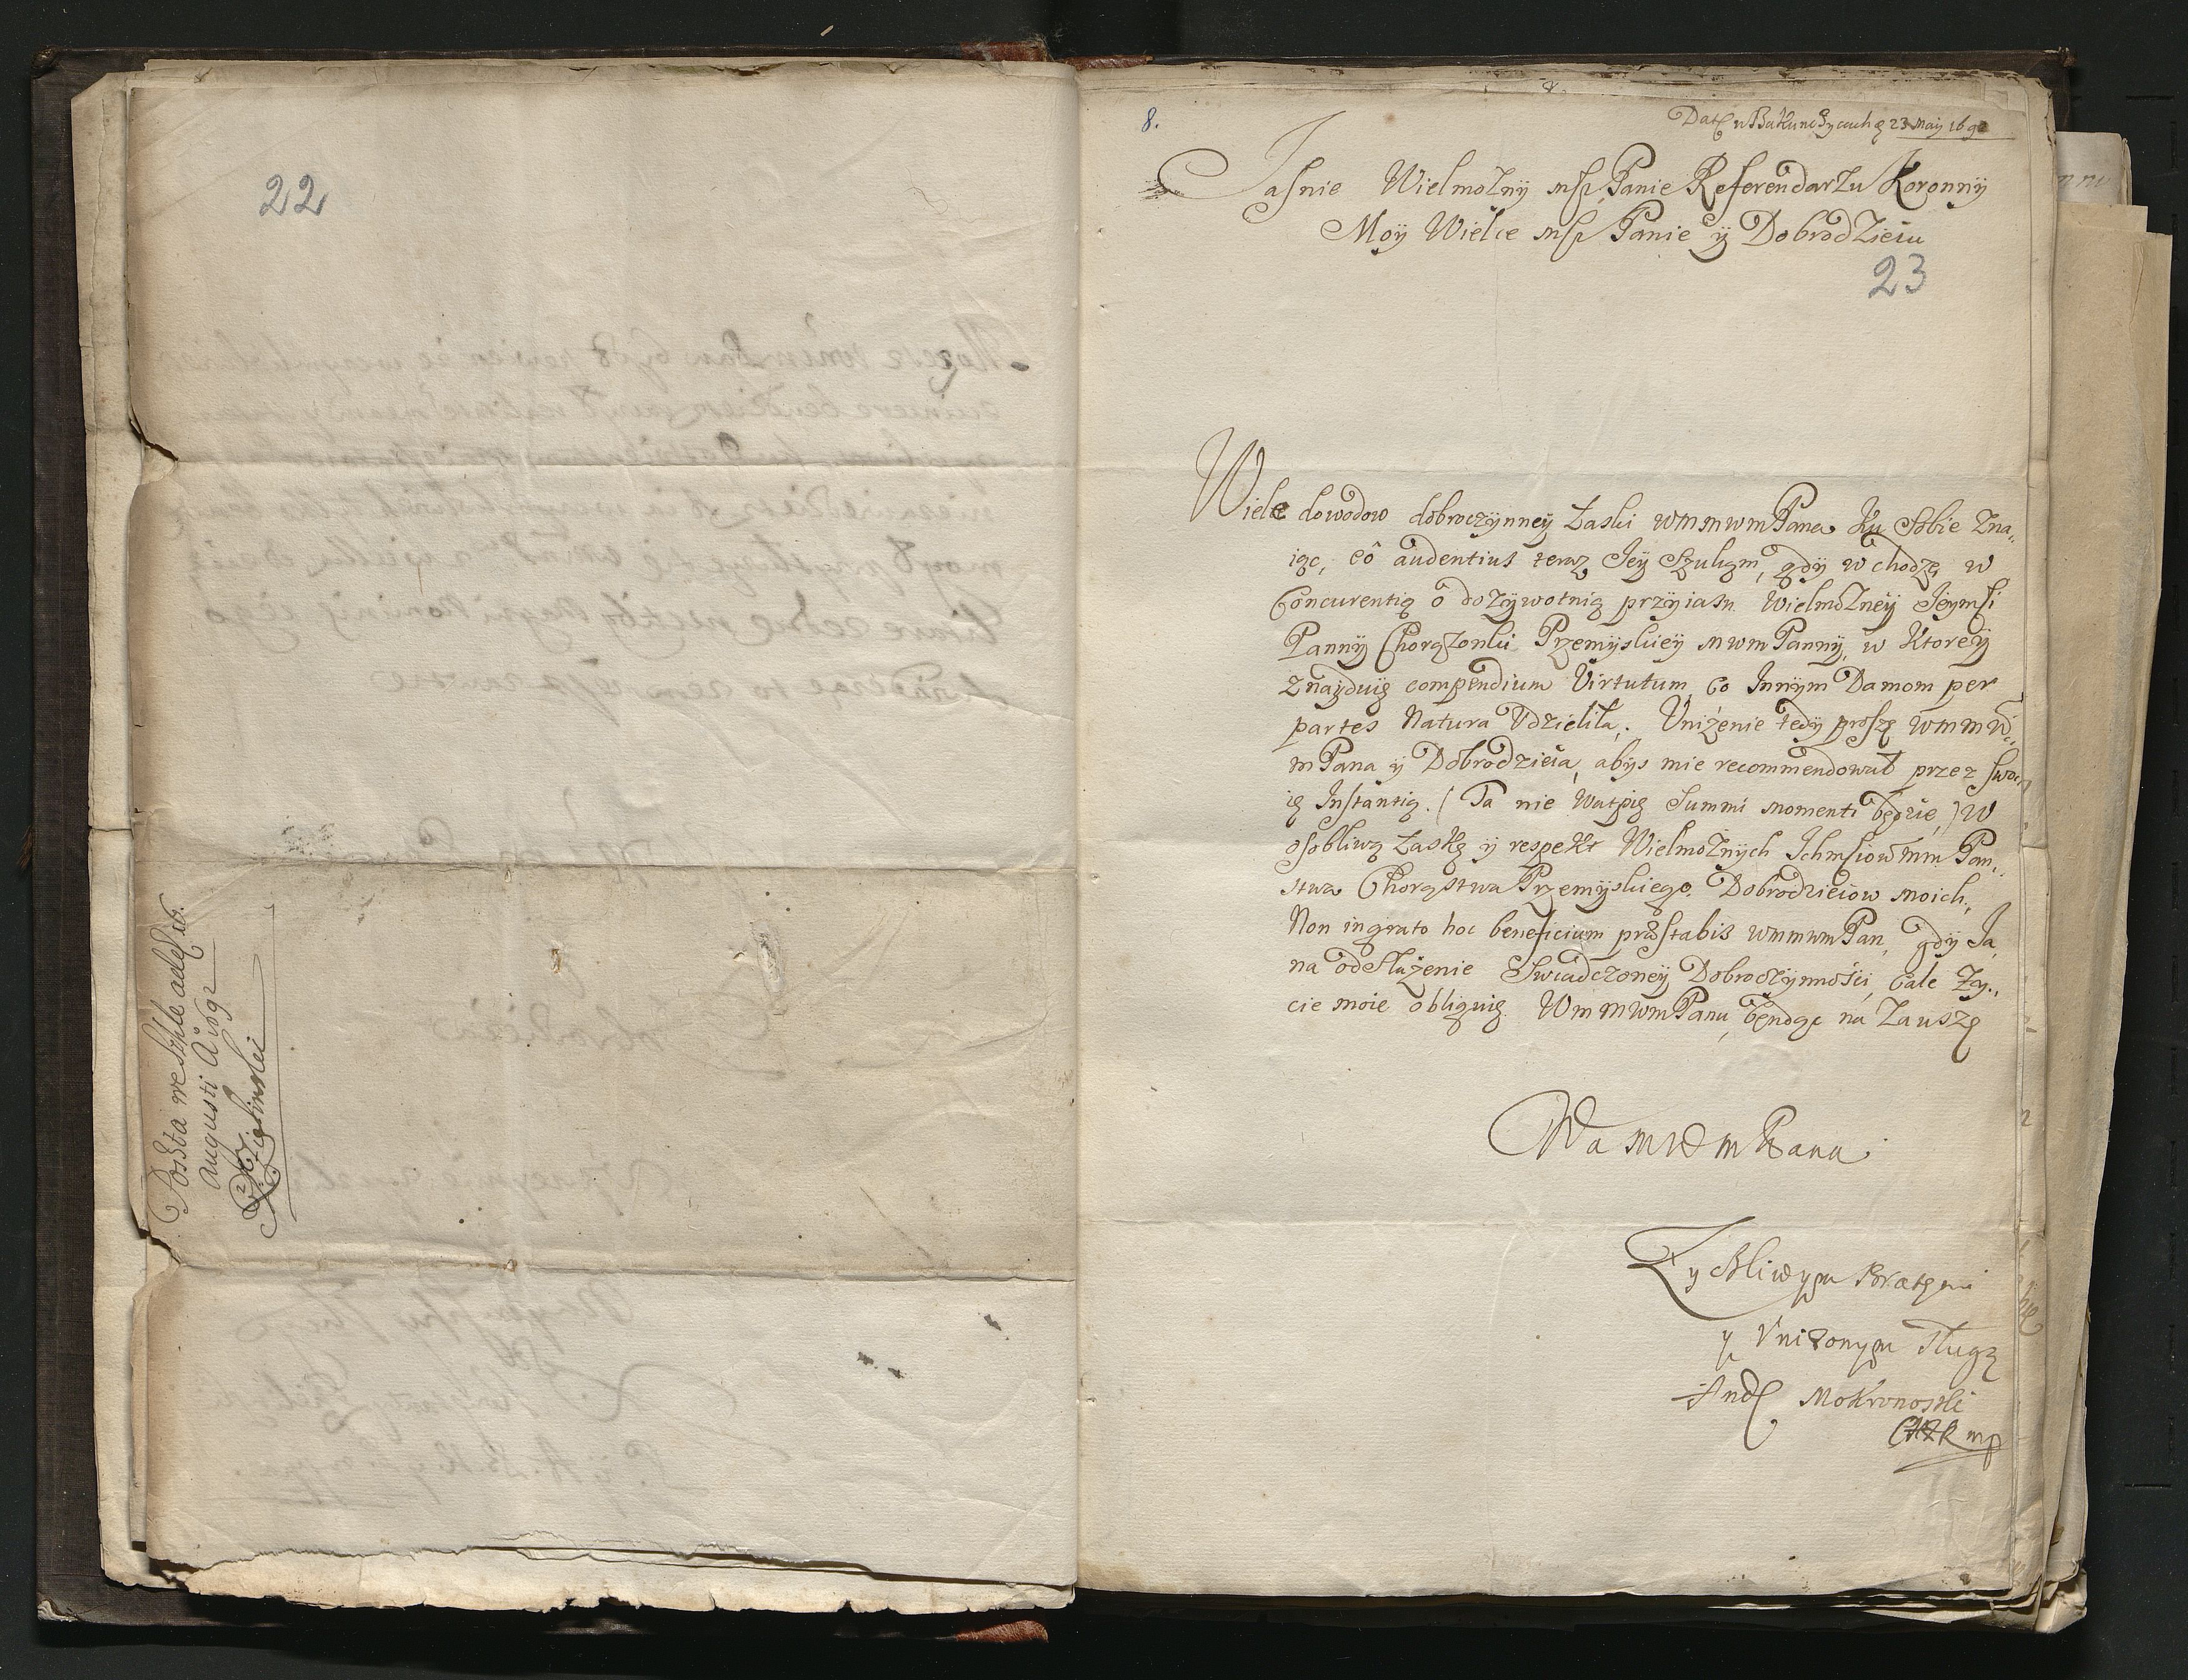 22
Augusti Aº 1692
8.
Dat w Bakunczycach 23 Maij 169
Jasnie Wielmozny msp Panie Referendarzu Koronny
Moÿ Wielce msp Panie ÿ Dobrodzieiu
23
Wiele dowodow dobroczÿnneÿ Łaski wmmwmPana Ku Sobie Zna„
iąc, eô audentius teraz Jeÿ Szukąm, gdÿ wchodzę w
Concurentią o dozÿwotnią przÿiasn Wielmozneÿ Jeÿmsci
Pannÿ Chorązonki Przemÿskieÿ mwmPannÿ, w Ktoreÿ
Znaÿduię compendium Virtutum, Co Innÿm Damom per
partes Natura Vdzieliła. Vniżenie tedÿ proszę wmmw„
mPana ÿ Dobrodzieia, abÿs mie recommendował przez swo„
ię Instantią. (Ta nie Watpię Summi momenti będzie,) W
osobliwą Łaskę ÿ respekt Wielmożnÿch Ichmsciow mm Pan„
stwa Chorąstwa Przemÿskiego, Dobrodzieiow moich,
Non ingrato hoc beneficium præstabis wmmwmPan, gdÿ Ja
na odsłużenie Swiadczoneÿ Dobroczÿnnosci, Całe Zÿ„
cie moie obliguię. WmmwmPanu, będąc na Zauszę
Wa mwmPana
Zyczliwym Bratem
y Vnizonym Sługą
And Mokronoski
mp